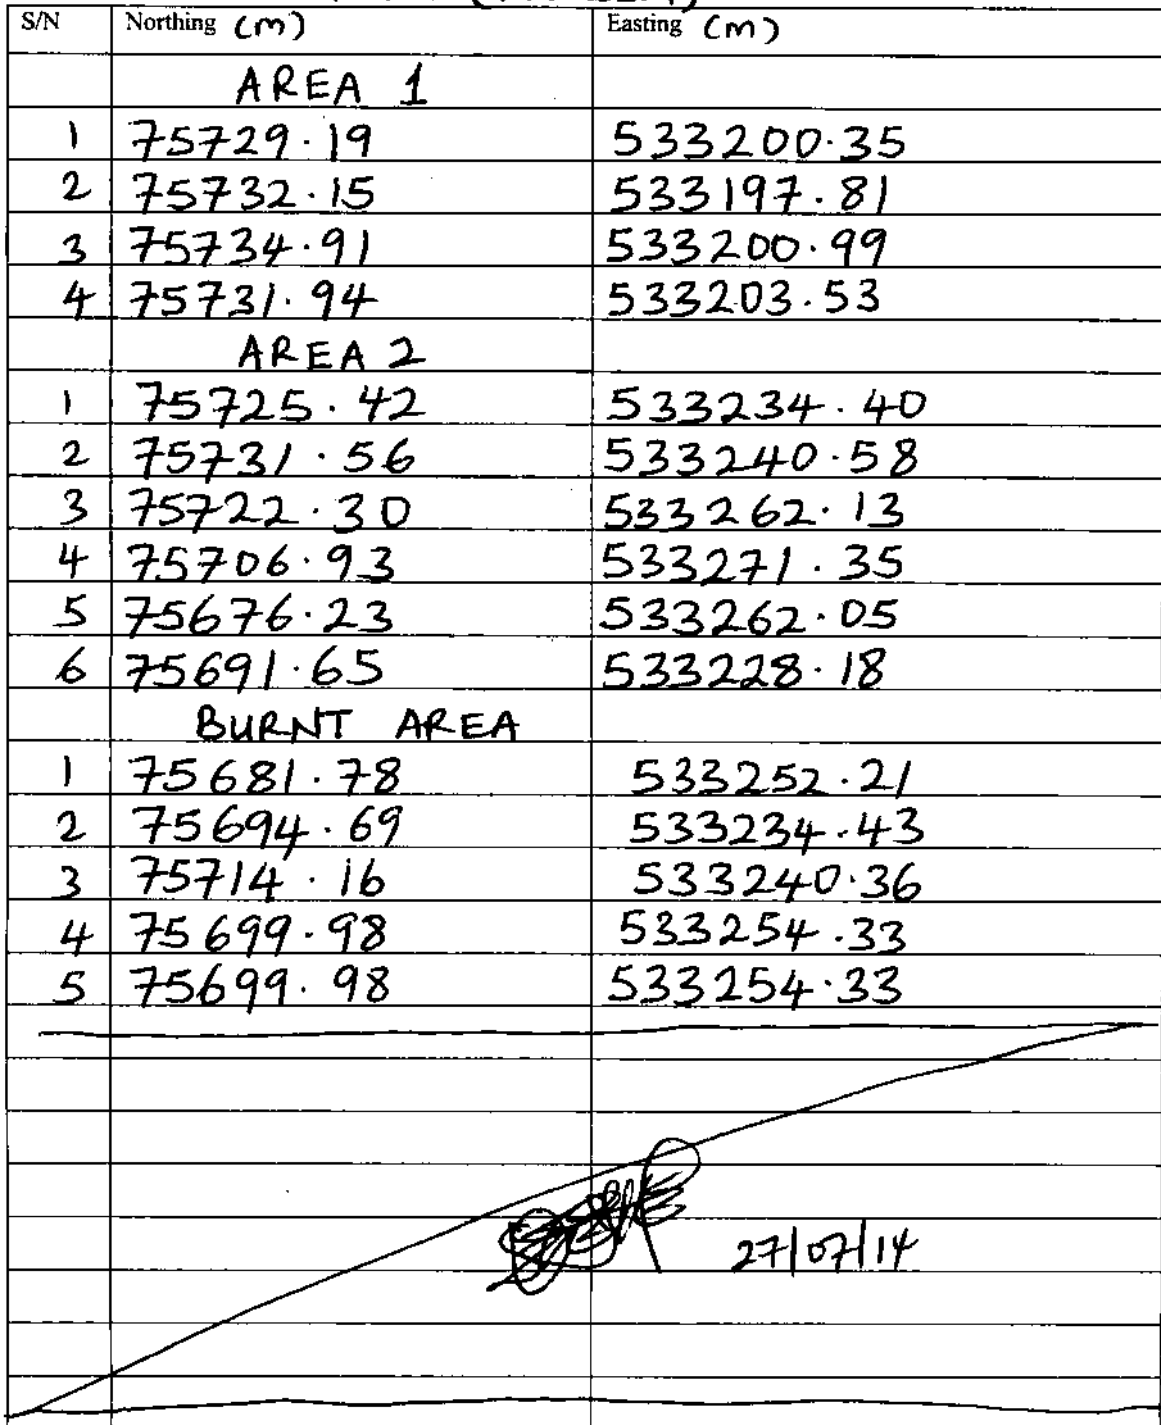 S/N Northing (m) Easting (m)
AREA 1
1 75729.19 533200.35
2 75732.15 533197.81
3 75734.91 533200.99
4 75731.94 533203.53
AREA 2
1 75725.42 533234.40
2 75731.56 533240.58
3 75722.30 533262.13
4 75706.93 533271.35
5 75676.23 533262.05
6 75691.65 533228.18
BURNT AREA
1 75681.78 533252.21
2 75694.69 533234.43
3 75714.16 533240.36
4 75699.98 533254.33
5 75699.98 533254.33
27/07/14